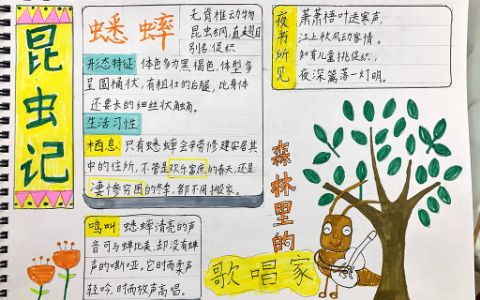 昆虫记
蟋蟀
无脊椎动物
昆虫纲,直翅目
别名:促织
形态特征 体色多为黑褐色,体型多
呈圆桶状,有粗壮的后腿,比身体
还要长的细丝状触角。
生活习性
栖息:只有蟋蟀会辛劳修建安居其
中的住所,不管是欢乐富庶的春天,还是
凄惨穷困的冬季,都不用搬家。
鸣叫:蟋蟀清亮的声
音可与蝉比美,却没有蝉
声的嘶哑。它时而柔声
轻吟,时而放声高唱。
夜书所见
萧萧梧叶送寒声,
江上秋风动客情。
知有儿童挑促织,
夜深篱落一灯明。
森林里的
歌唱家